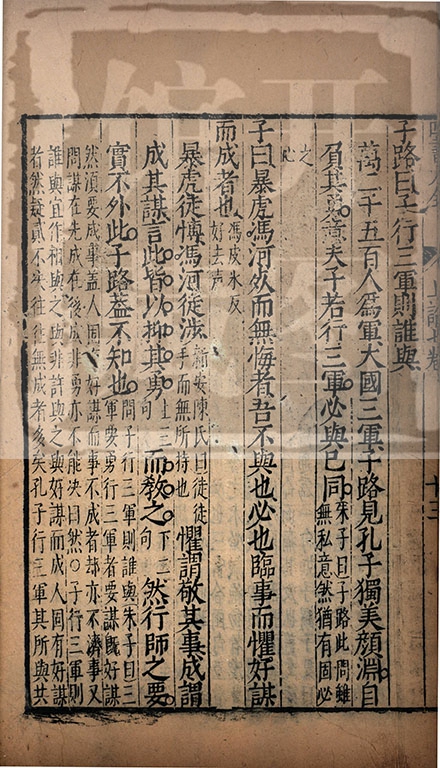 子路曰子行三軍則誰與
萬二千五百人爲軍大國三軍子路見孔子獨美顏淵自
負其勇意夫子若行三軍必與己同朱子曰子路此問雖
無私意然猶有固必
之
子曰暴虎馮河死而無悔者吾不與也必也臨事而懼好謀
而成者也馮皮氷反
好去声
暴虎徒博馮河徒涉新安陳氏曰徒徒
手而無所持也懼謂敬其事成謂
成其謀言此皆以抑其勇句
上三而教之下二
句然行師之要
實不外此子路蓋不知也問子行三軍則誰與朱子曰三
軍要勇行三軍者要謀旣好謀
然須要成事蓋人固有好謀而事不成者却亦不濟事又
問謀在先成在後成非勇亦不能決曰然○子行三軍則
誰與宜作相與之與非許與之與好謀而成人固有好謀
者然疑貳不決往往無成者多矣孔子行三軍其所與共